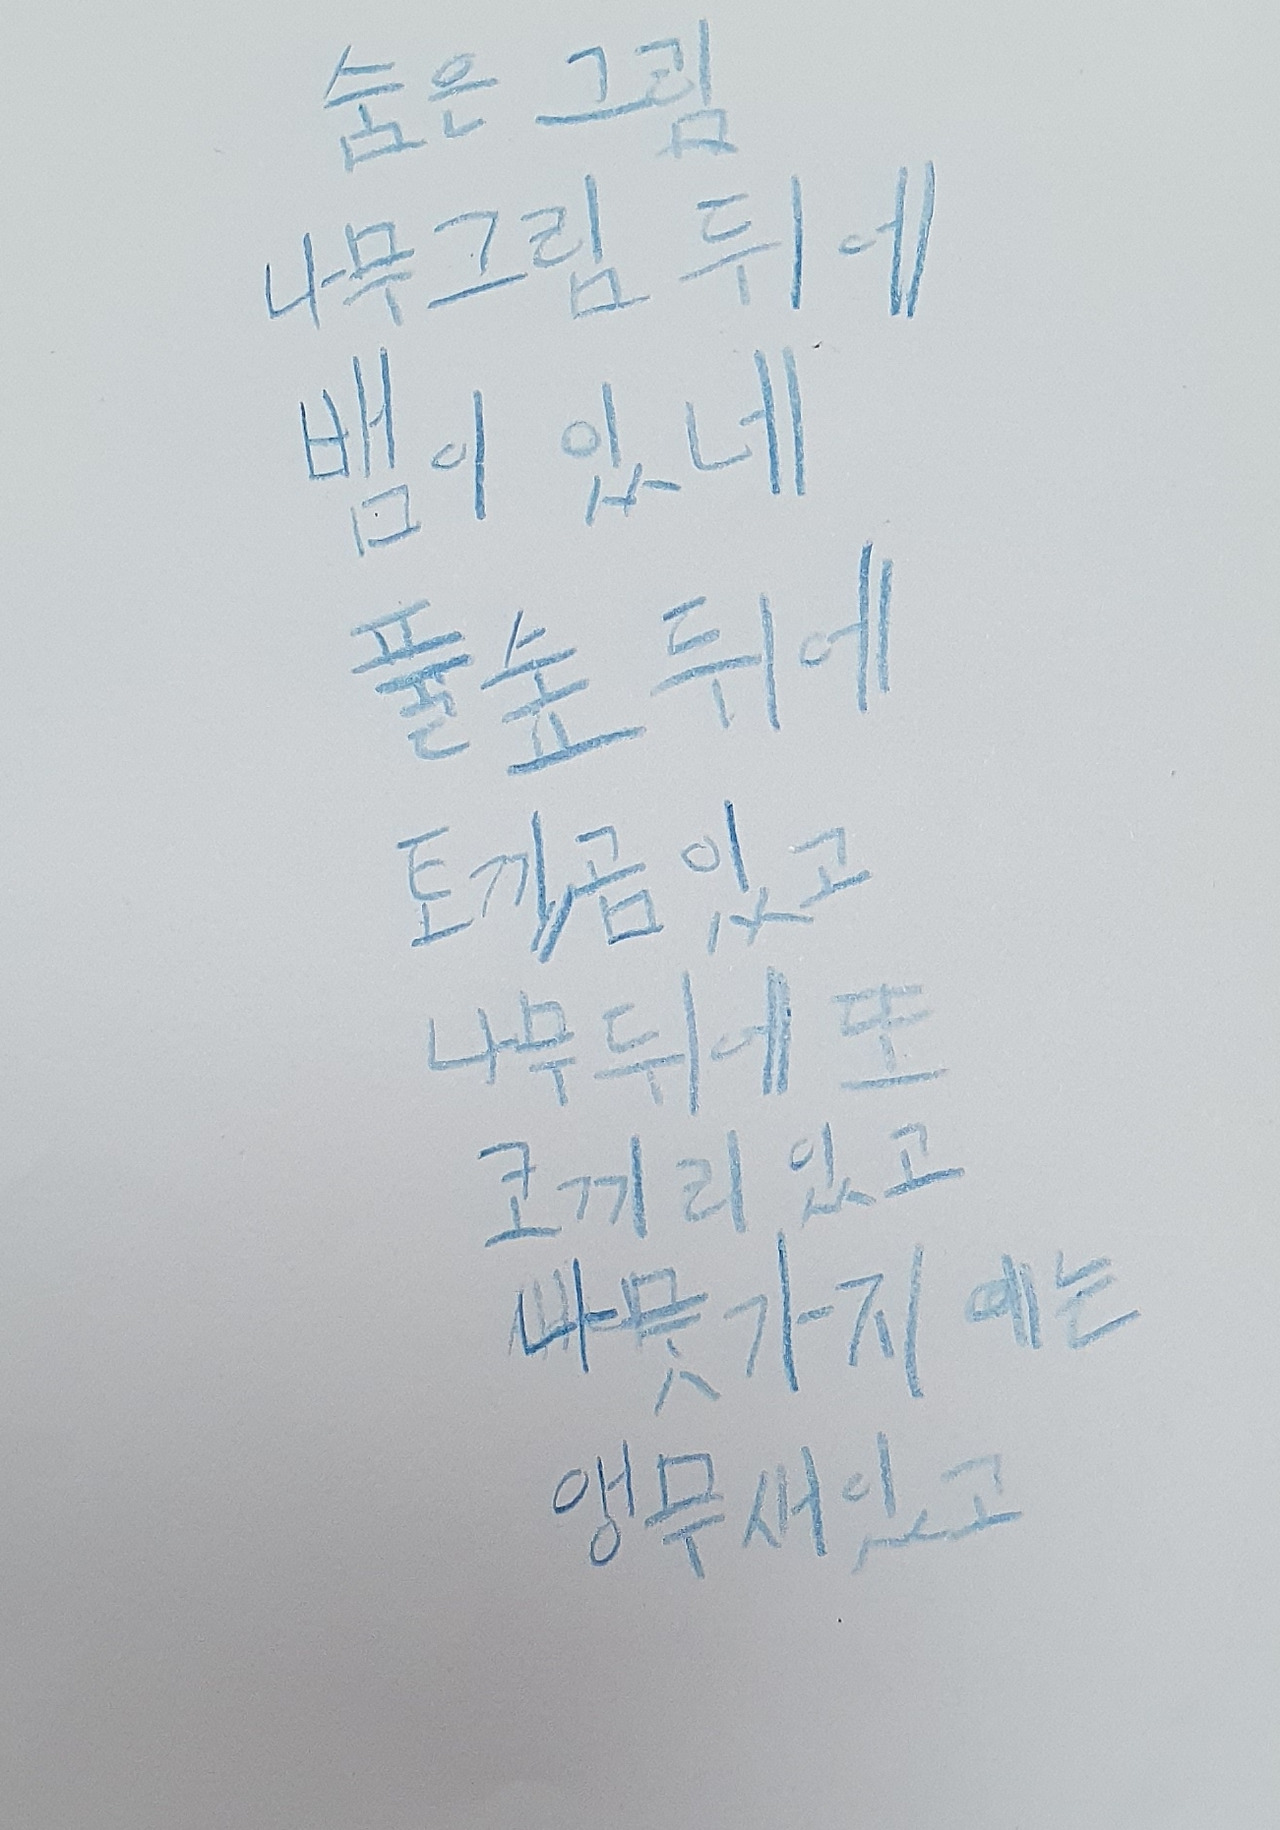 숨은 그림
나무그림 뒤에
뱀이 있네
풀숲 뒤에
토끼,곰 있고
나무뒤에 또
코끼리 있고
나뭇가지에는
앵무새있고